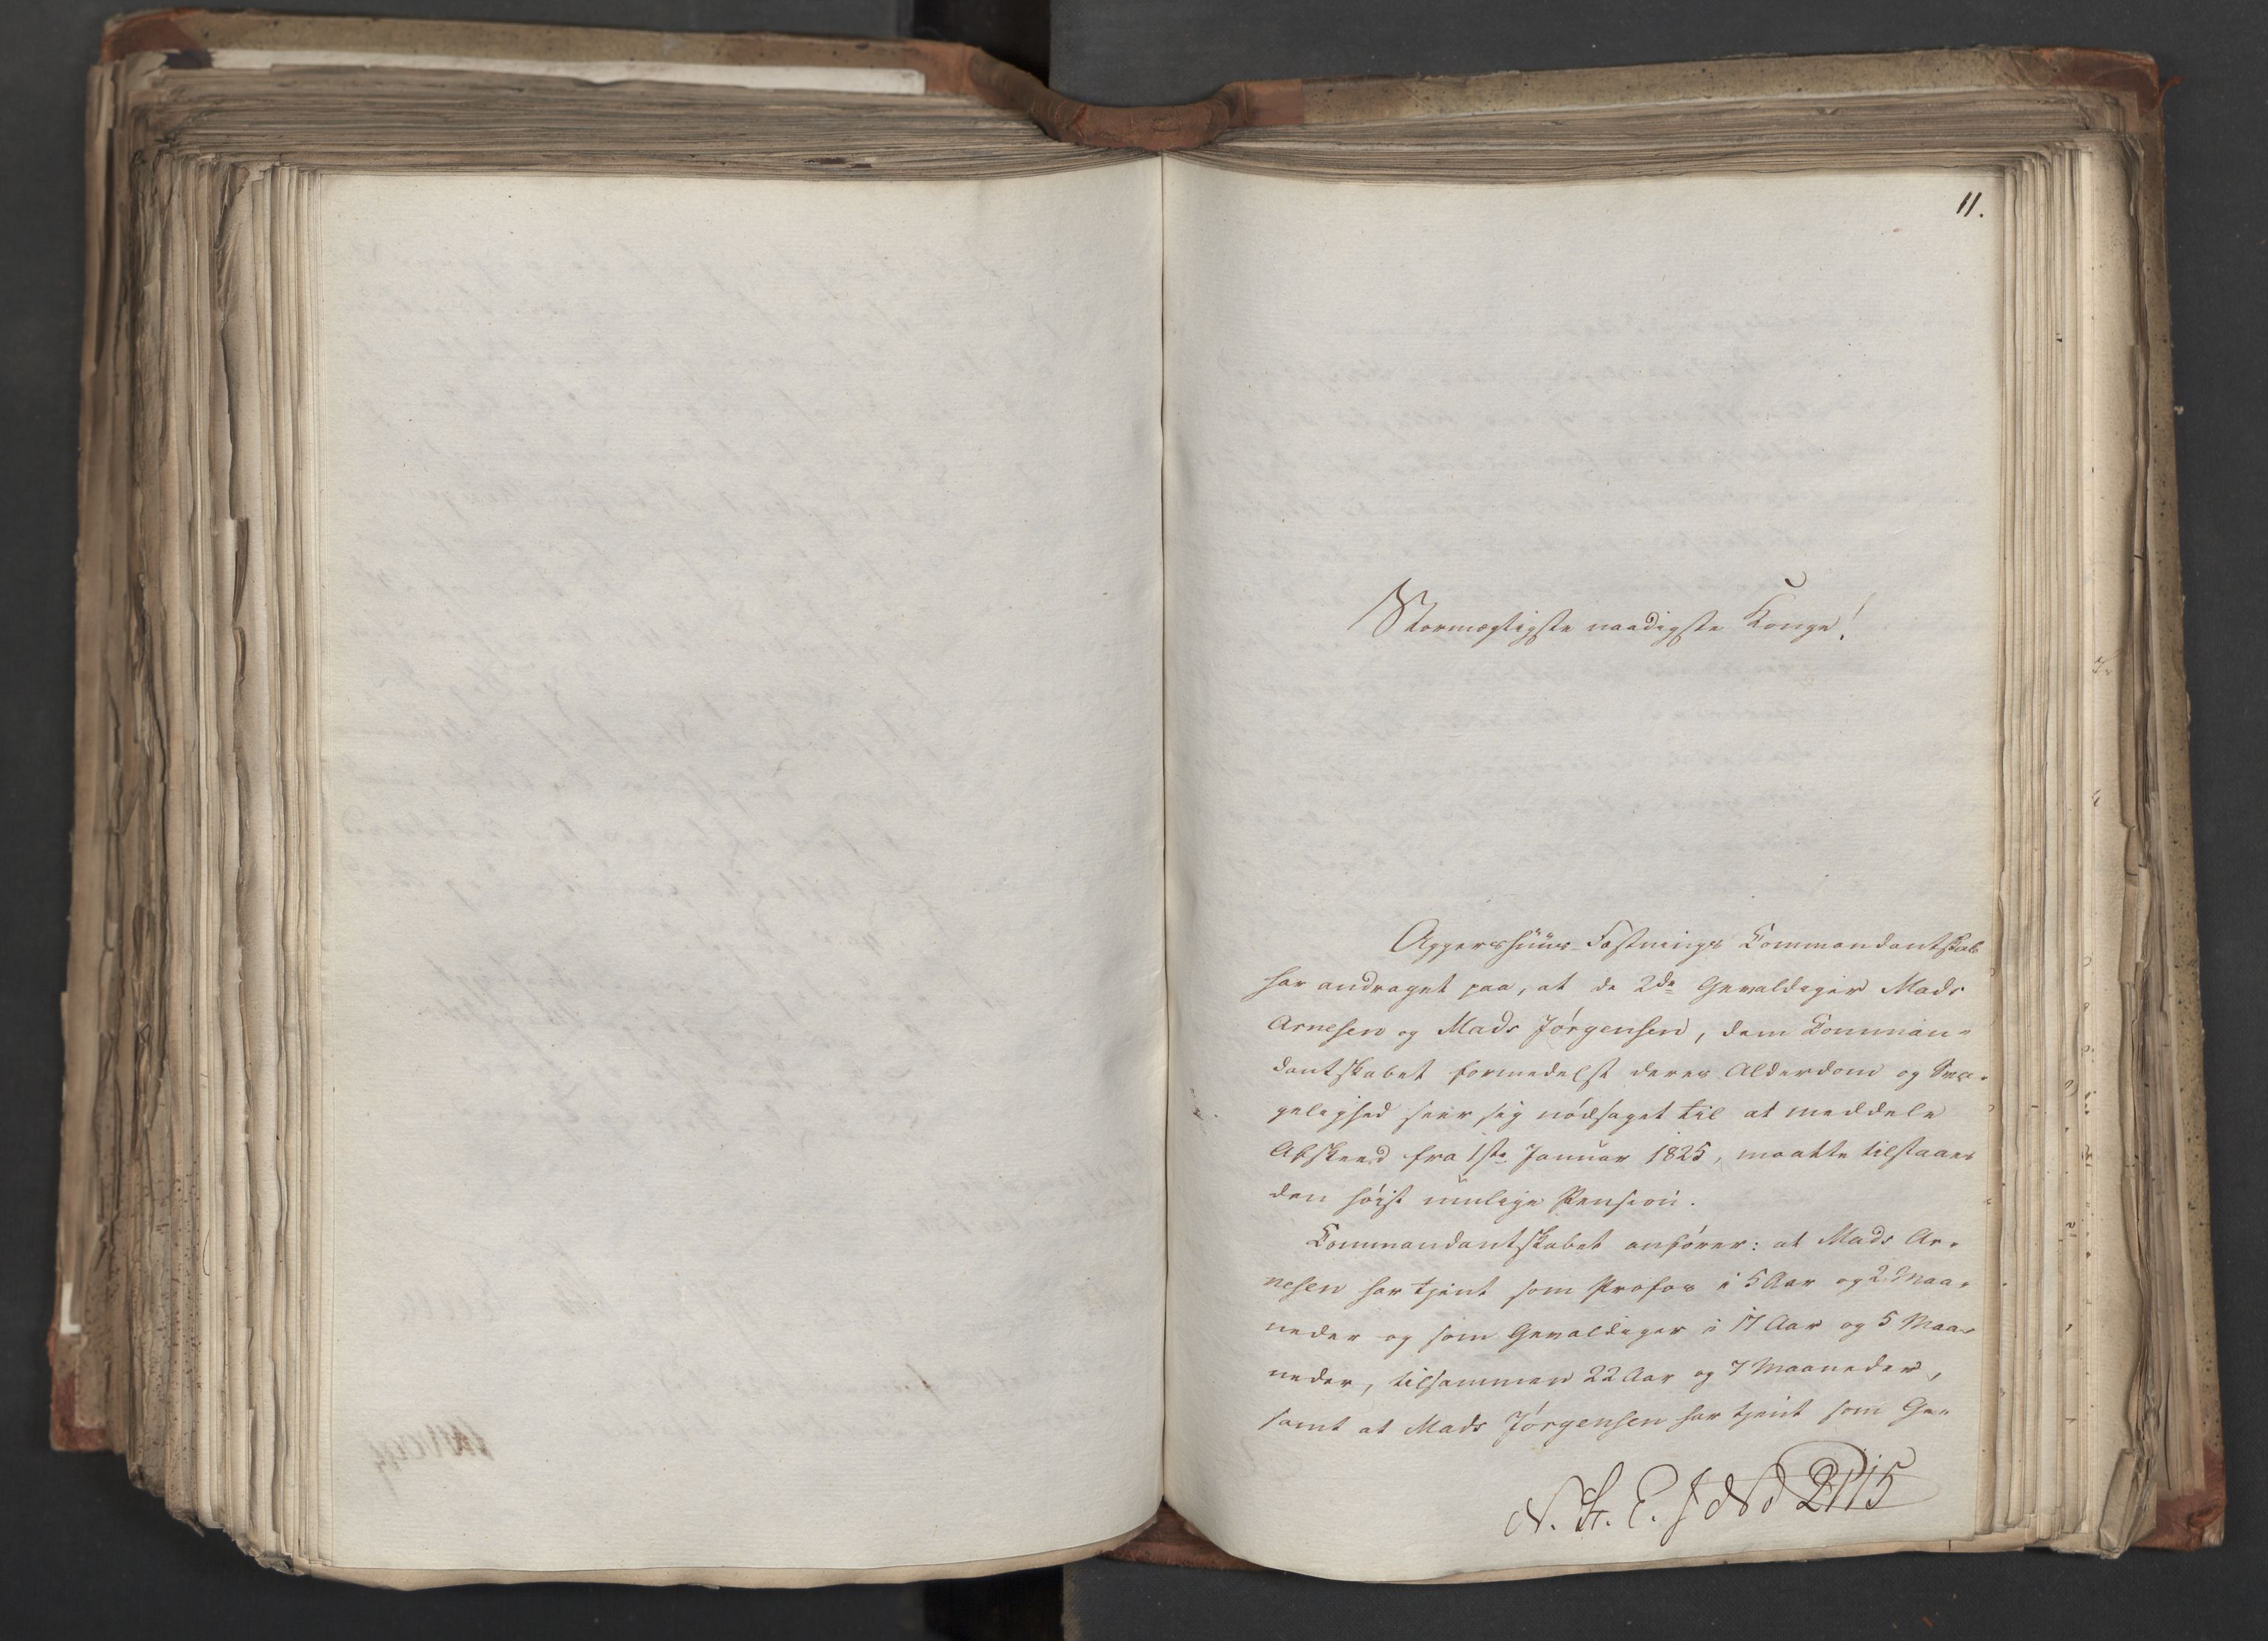 11.
Stormægtigste naadigste Konge!
Aggershuus Fæstnings Commandantskab
har andraget paa, at de 2de Gevaldiger Mads
Arnesen og Mads Jörgensen, dem Comman-
dantskabet formedelst deres Alderdom og Svæ-
gelighed seer sig nödsaget til at meddele
Afskeed fra 1ste Januar 1825, maatte tilstaaes
den höist mulige Pension.
Commandantskabet anförer: at Mads Ar-
nesen har tjent som Profos i 5 Aar og 2 Maa-
neder og som Gevaldiger i 17 Aar og 5 Maa-
neder, tilsammen 22 Aar og 7 Maaneder,
samt at Mads Jörgensen har tjent som Ge-
N. St. E. J No